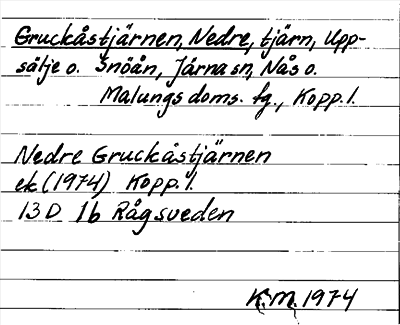 Gruckåstjärnen, Nedre, tjärn, Upp-
sälje o. Snöån, Järna sn, Nås o.
Malungs doms. fg., Kopp. l.
Nedre Gruckåstjärnen
ek (1974) Kopp. l.
13 D 1b Rågsveden
K.M. 1974